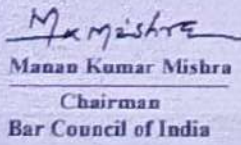 Mk Mishra
Manan Kumar Mishra
Chairman
Bar Council of India